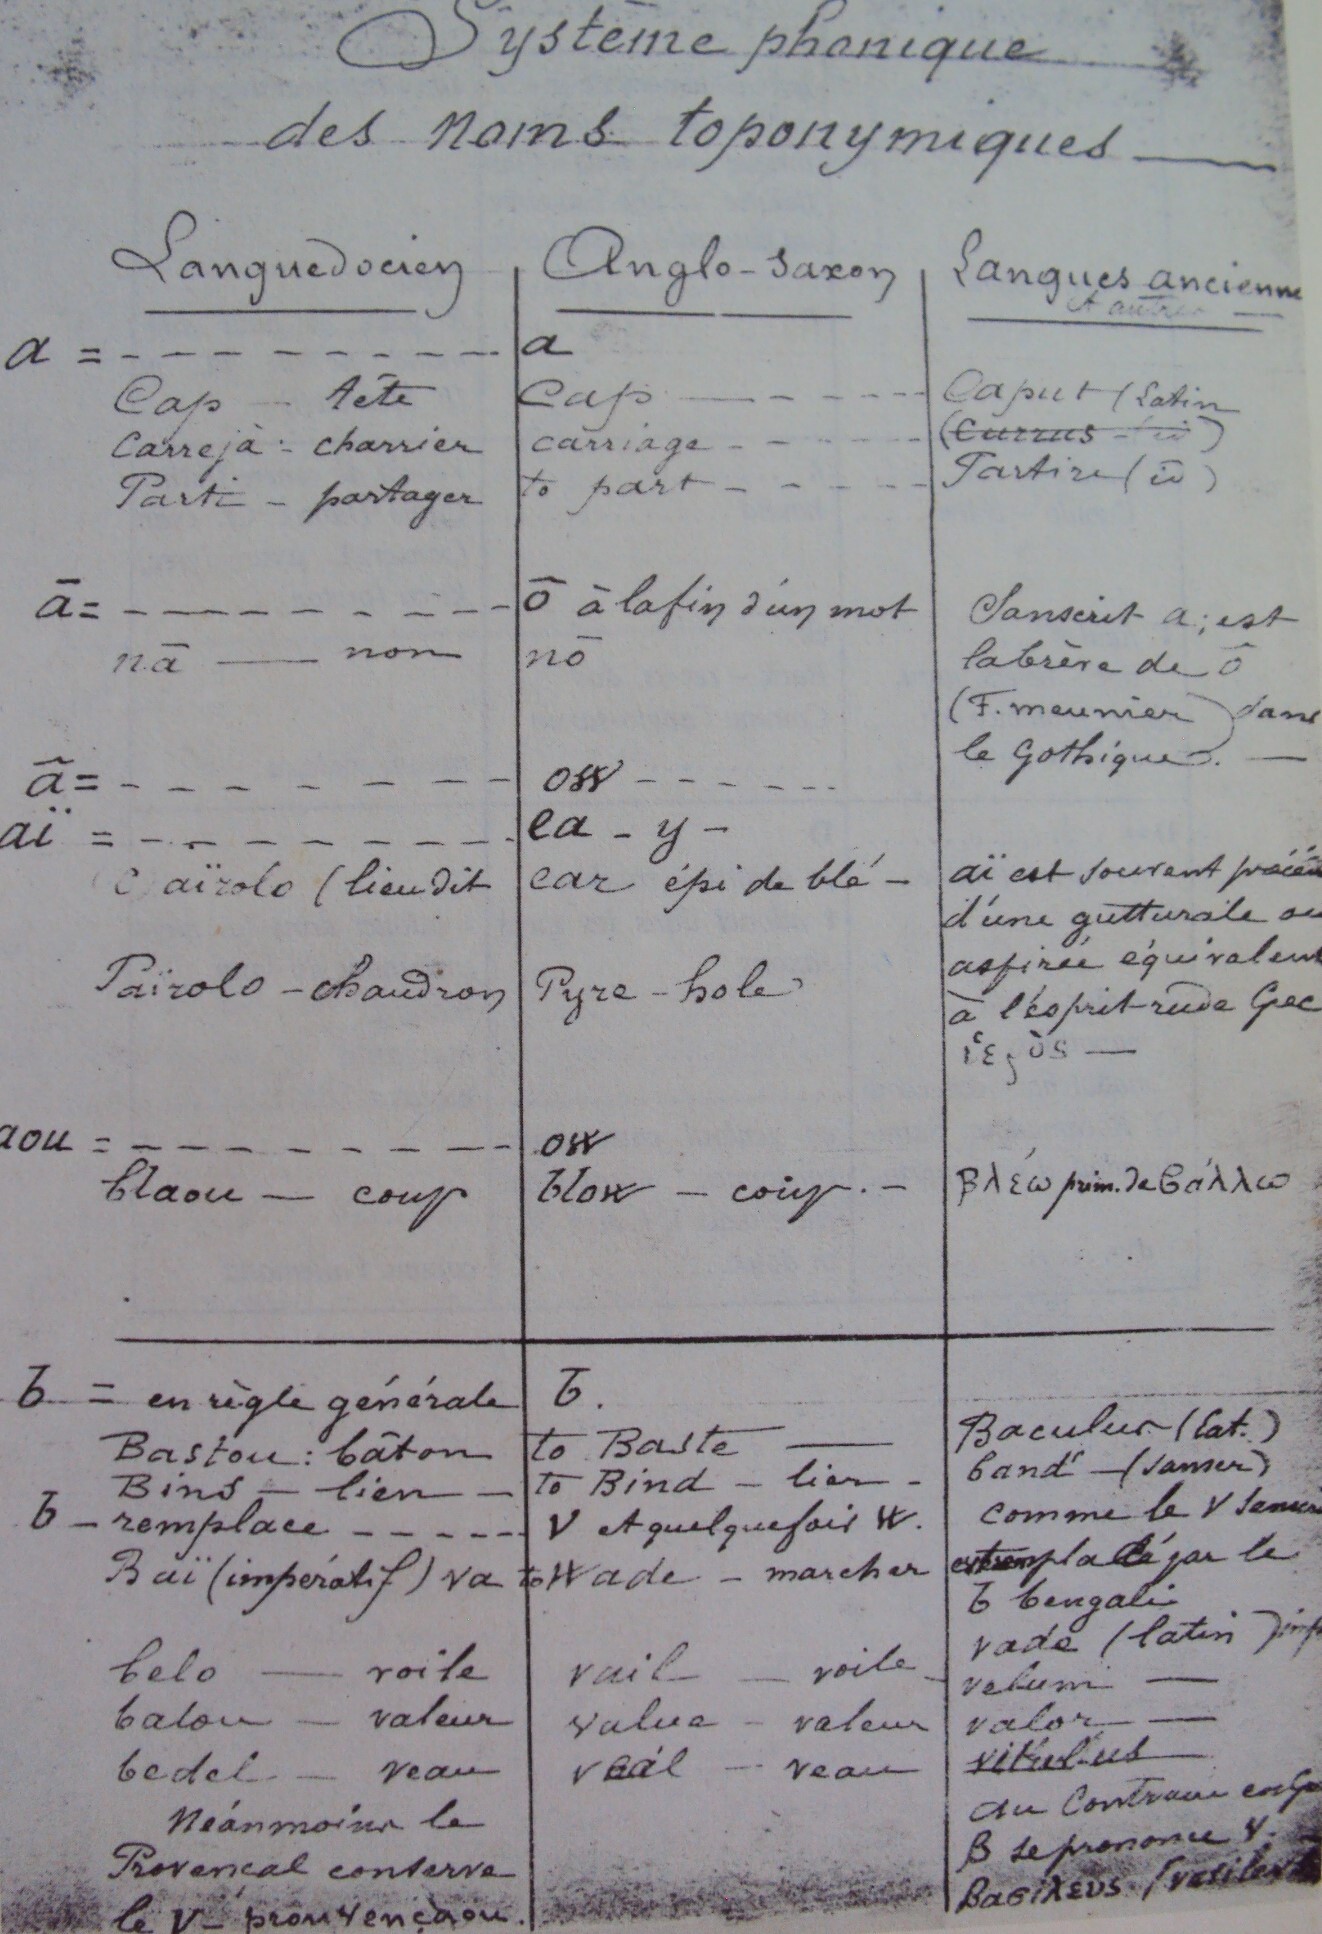 Système phonique
des noms toponymiques
Languedocien Anglo-Saxon Langues ancienne
et autres
a = a
Cap tête Cap Caput (Latin
Carrejà : charrier carriage (Currus id)
Parti - partager to part Partire (id)
ā = ō à la fin d'un mot Sanscrit a; est
nā — non nō la brève de ô
(F. meunier) dans
le Gothique. —
ã = ow
aï = ea - y -
(C) aïrolo (lieu dit ear épi de blé - aï est souvent
d'une gutturale ou
aspirée équivalent
Païrolo - chaudron Pyre-hole à l'esprit rude Grec
aou = ow
blaou — coup blow - coup. - βλέω prim. de βάλλω
b = en règle générale b.
Bastou : bâton to Baste — Baculus (Lat.)
Bins — lien — to Bind - lier - band' - (Sanscr)
b - remplace v et quelquefois w. comme le v
Baï (impératif) va to Wade - marcher est remplacé par le
b bengali
vade (latin) imp
belo — voile vail - voile - velum —
balou — valeur value - valeur valor —
bedel - veau veal - veau vitulus
Néanmoins le au contraire en
Provençal conserve B se prononce v.
le v - prouvençaou. Βασιλευς